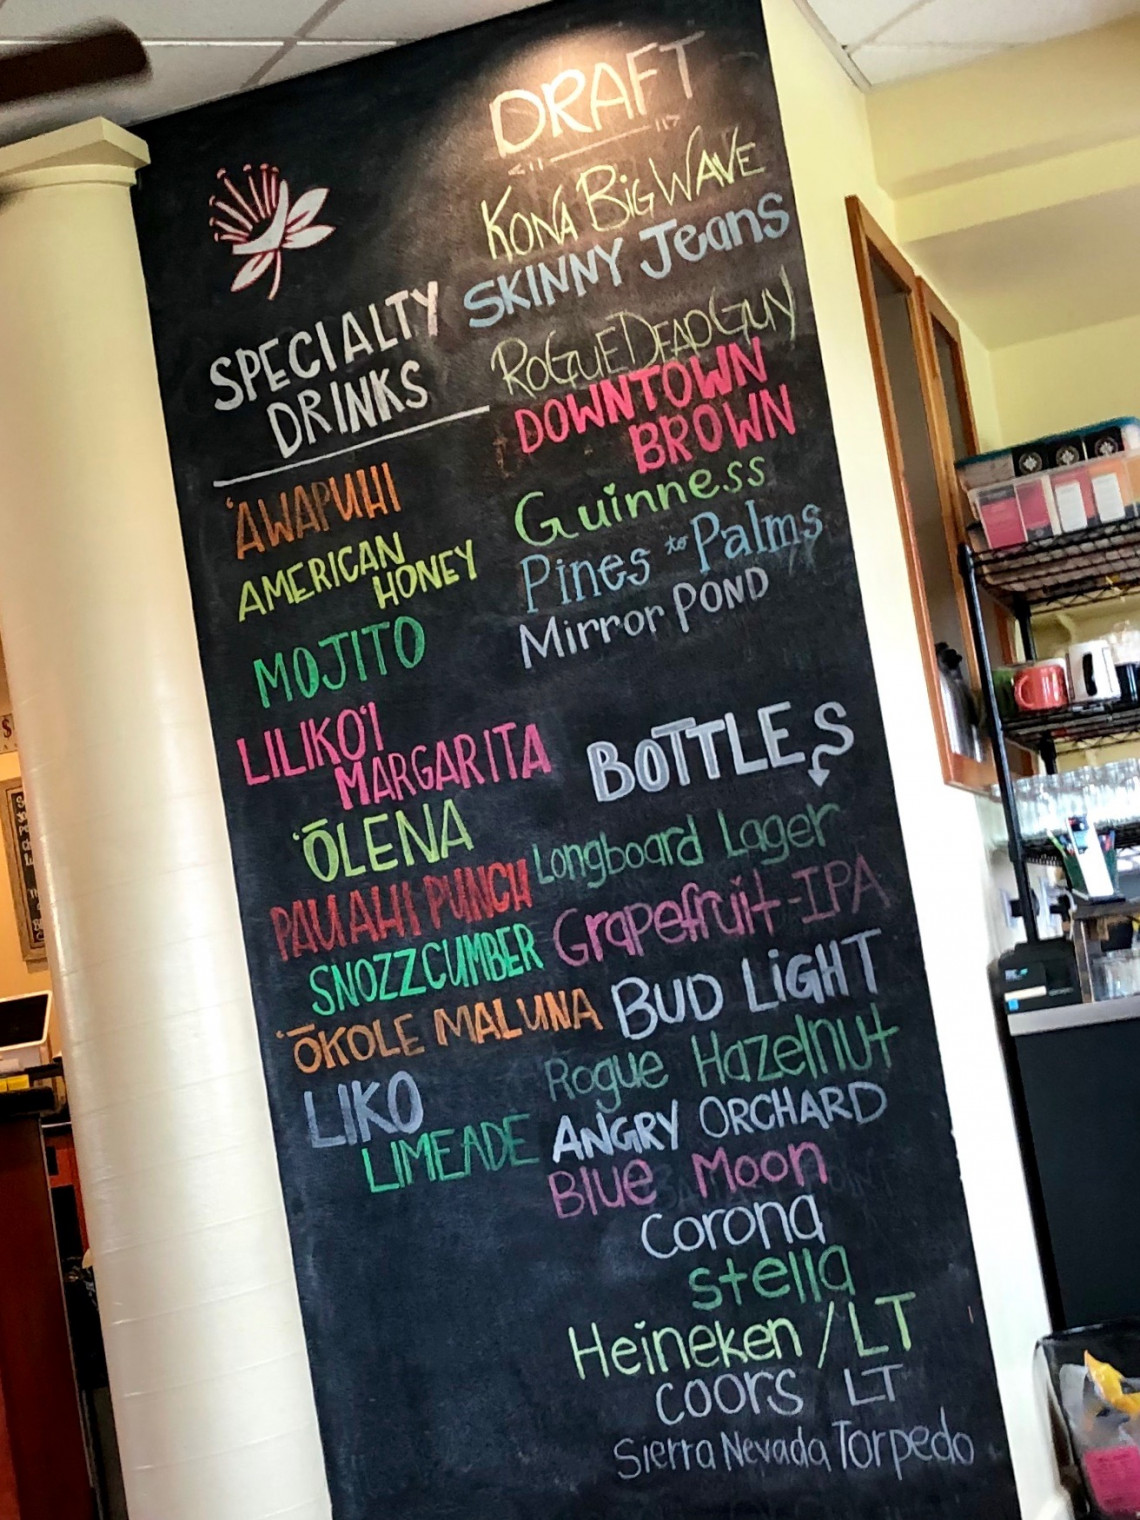 DRAFT
KONA BIG WAVE
SKINNY Jeans
ROGUE DEAD GUY
DOWNTOWN
BROWN
Guinness
Pines to Palms
Mirror POND
SPECIALTY
DRINKS
'AWAPUHI
AMERICAN
HONEY
MOJITO
LILIKO'I
MARGARITA
'ŌLENA
PAUAHI PUNCH
SNOZZCUMBER
'ŌKOLE MALUNA
LIKO
LIMEADE
BOTTLES
Longboard Lager
Grapefruit-IPA
BUD LiGHT
Rogue Hazelnut
ANGRY ORCHARD
Blue Moon
Corona
stella
Heineken / LT
COORS LT
Sierra Nevada Torpedo